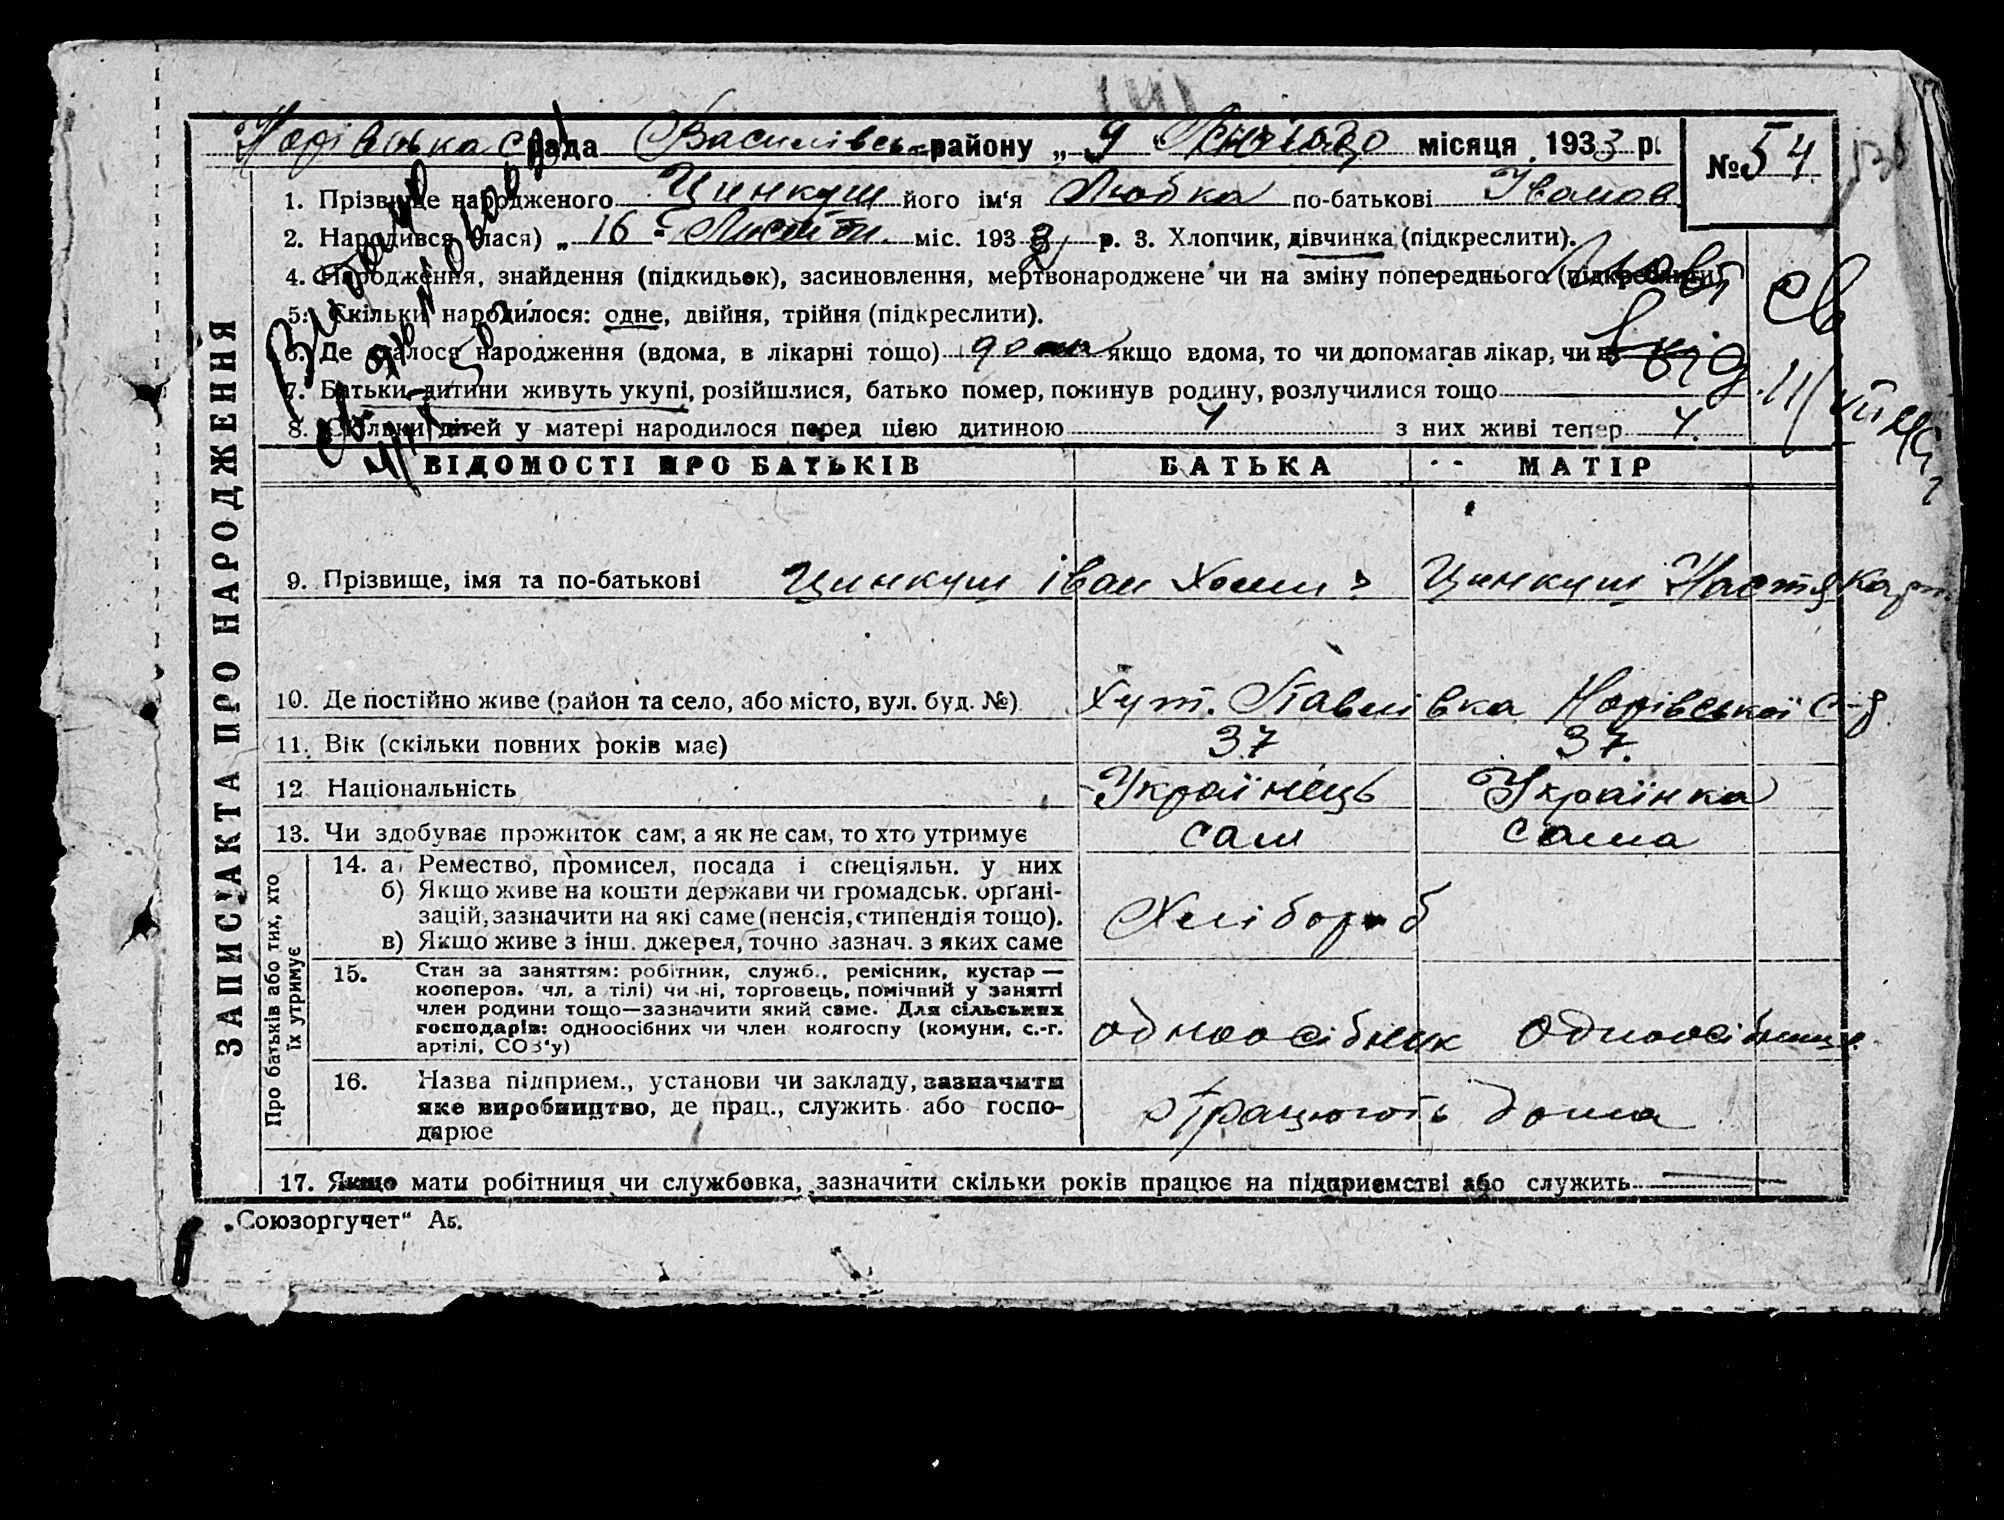 рада Василівськ району „ 9 місяця 1933 р. № 54
1. Прізвище народженого Цинкуш його ім'я Любка по-батькові Іванов
2. Народився (лася) „ 16 " Листоп. міс. 193 р. 3. Хлопчик, дівчинка (підкреслити).
4. Народження, знайдення (підкидьок), засиновлення, мертвонароджене чи на зміну попереднього (підкреслити)
5. Скільки народилося: одне, двійня, трійня (підкреслити).
6. Де сталося народження (вдома, в лікарні тощо) дома якщо вдома, то чи допомагав лікар, чи
7. Батьки дитини живуть укупі, розійшлися, батько помер, покинув родину, розлучилися тощо
8. Скільки дітей у матері народилося перед цією дитиною 4 з них живі тепер 4.
ВІДОМОСТІ ПРО БАТЬКІВ БАТЬКА МАТІР
9. Прізвище, імя та по-батькові Цинкуш Іван Хоми Цинкуш Настя Карп.
10. Де постійно живе (район та село, або місто, вул. буд. №) Хут. Павлівка Норівської с-д
11. Вік (скільки повних років має) 37 37.
12 Національність Українець Українка
13. Чи здобуває прожиток сам, а як не сам, то хто утримує сам сама
14. а) Ремество, промисел, посада і спеціяльн. у них
б) Якщо живе на кошти держави чи громадськ. органі-
зацій, зазначити на які саме (пенсія, стипендія тощо). Хлібороб
в) Якщо живе з інш. джерел, точно зазнач. з яких саме
15. Стан за заняттям: робітник, служб., ремісник, кустар —
кооперов. чл. а тілі) чи ні, торговець, помічний у занятті
член родини тощо—зазначити який саме. Для сільських
господарів: одноосібних чи член колгоспу (комуни, с.-г. одноосібник одноосібниця
артілі, СОЗ'у)
16. Назва підприєм., установи чи закладу, зазначити
яке виробництво, де прац., служить або госпо- працюють дома
дарює
17. Якщо мати робітниця чи службовка, зазначити скільки років працює на підприємстві або служить
ЗАПИС АКТА ПРО НАРОДЖЕННЯ
Про батьків або тих, хто
їх утримує
„Союзоргучет“ А5.